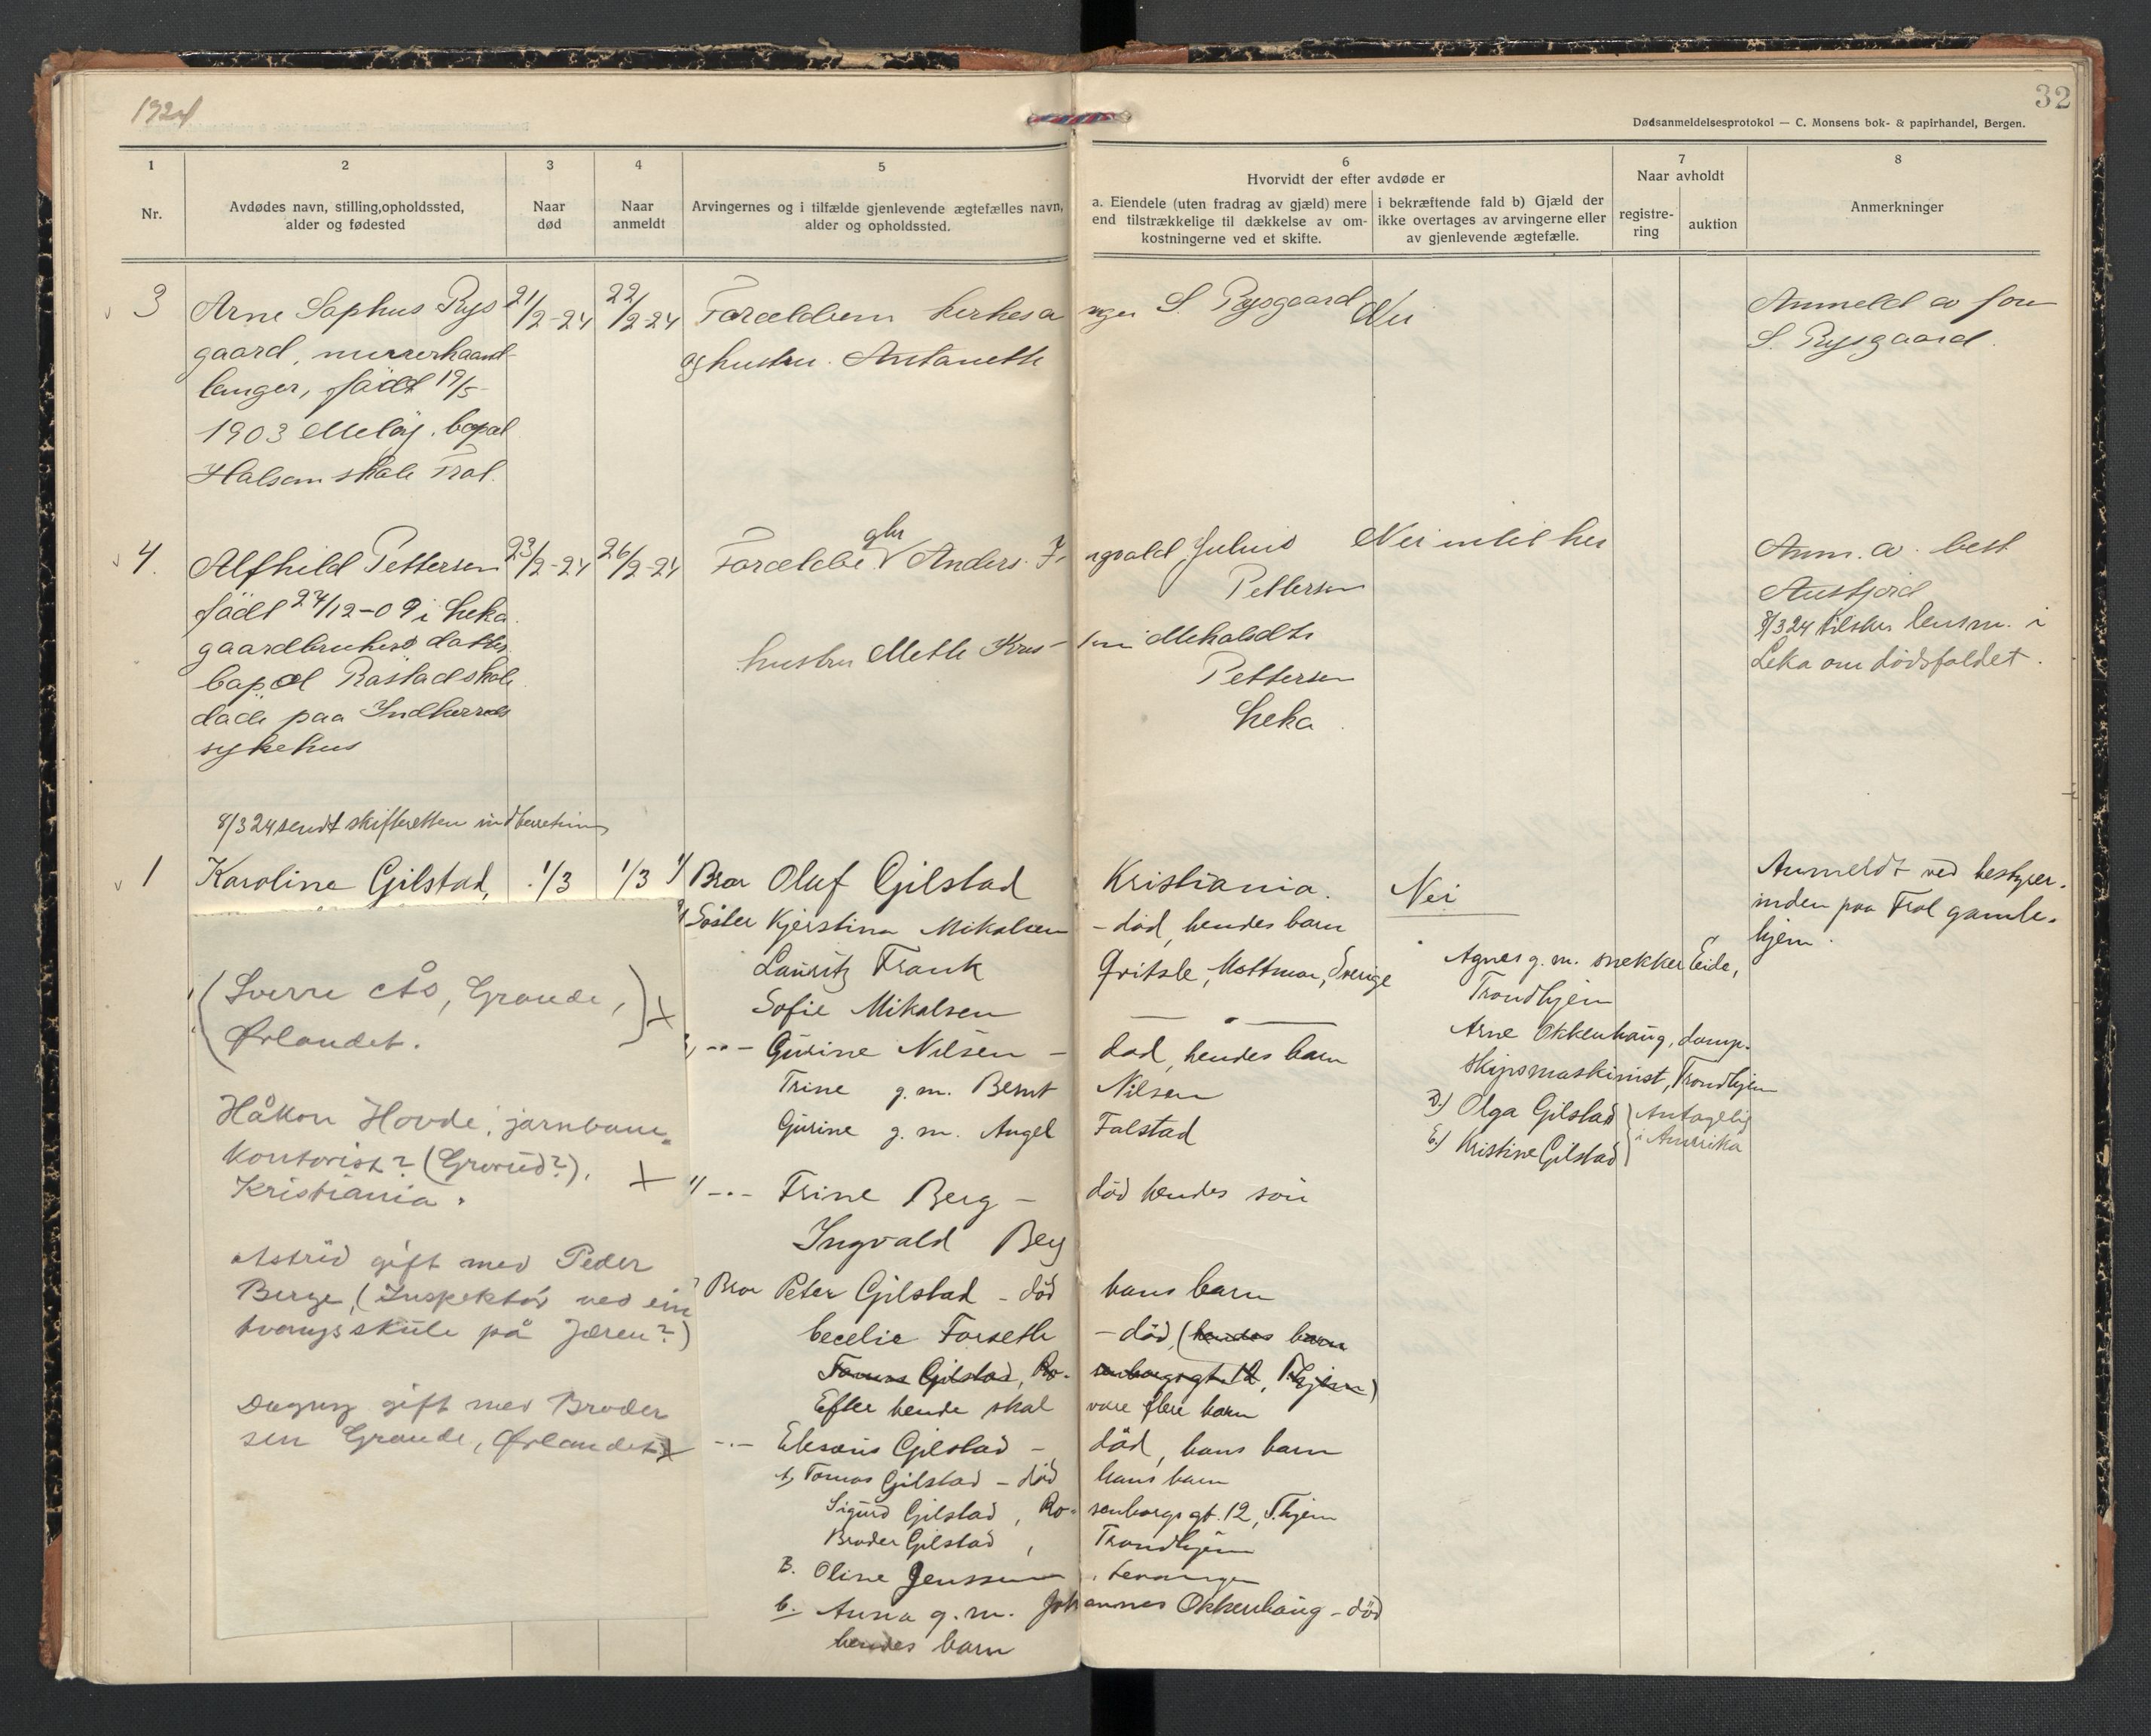 1924
32
Dødsanmeldelsesprotokol — C. Monsens bok- & papirhandel, Bergen.
1
Nr.
2
Avdødes navn, stilling, opholdssted,
alder og fødested
3
Naar
død
4
Naar
anmeldt
5
Arvingernes og i tilfælde gjenlevende ægtefælles navn,
alder og opholdssted.
6
Hvorvidt der efter avdøde er
a. Eiendele (uten fradrag av gjæld) mere
end tilstrækkelige til dækkelse av om-
kostningerne ved et skifte.
i bekræftende fald b) Gjæld der
ikke overtages av arvingerne eller
av gjenlevende ægtefælle.
7
Naar avholdt
registre-
ring
auktion
8
Anmerkninger
3
Arne Sophus Rys
gaard, murerhaand-
langer, født 19/5-
1903 Meløy. bopæl
Halsan skole Frol.
21/2-24
22/2-24
Forældrene
S. Rysgaard
og hustru Antonette
Nei
Anmeldt av
S. Rysgaard.
4.
Alfhild Pettersen
født 27/12-09 i Leka.
gaardbrukers datter
bopæl Røstad skole
døde paa Indherreds
sykehus
23/2-24
26/2-24
Forældre gbr Anders I-
ngvald Julius
Pettersen
hustru Mette
Pettersen
Leka.
Nei
Anm. av best
Austfjord
8/3 24 tilskr. lensm. i
Leka om dødsfaldet.
8/3 24 sendt skifteretten indberetning
1
Karoline Gilstad,
1/3
1/3
1/ Bror Oluf Gilstad
Kristiania.
Nei
Anmeldt ved bestyrer-
inden paa Frol gamle-
hjem.
Søster Kjerstina Mikalsen
- død, hendes barn
Lauritz Frank
Sverige
Sofie Mikalsen
—"—
3, -"- Gurine Nilsen -
død, hendes barn
Trine g.m. Bernt
Nilsen
Gurine g.m. Angel
Falstad
-"- Trine Berg -
død hendes søn
Ingvald Berg
Bror Peter Gilstad - død
hans barn
Cecelie Forseth
- død, (hendes barn
Tomas Gilstad, Ro-
senborgsgt. 12, Thjem)
Efter hende skal
være flere barn
-"- Eliseus Gilstad -
død, hans barn
A, Tomas Gilstad - død
hans barn
Sigurd Gilstad, Ro-
senborgs gt. 12, T.hjem
Broder Gilstad,
Trondhjem
B. Oline Jenssen
, Levanger
C. Anna g.m. Joh
annes Okkenhaug - død
hendes barn
Agnes g.m. snekker Eide,
Trondhjem
Arne Okkenhaug, damp-
skipsmaskinist, Trondhjem
D.) Olga Gilstad
E.) Kristine Gilstad
Antagelig
i Amerika
(Sverre Ås, Grande,
Ørlandet.) +
Håkon Hovde, jarnbane-
kontorist? (Grorud?),
Kristiania. +
Astrid gift med Peder
Berge, (Inspektør ved ein
tvangsskule på Jæren?)
Dagny gift med Broder
sen Grande, Ørlandet +